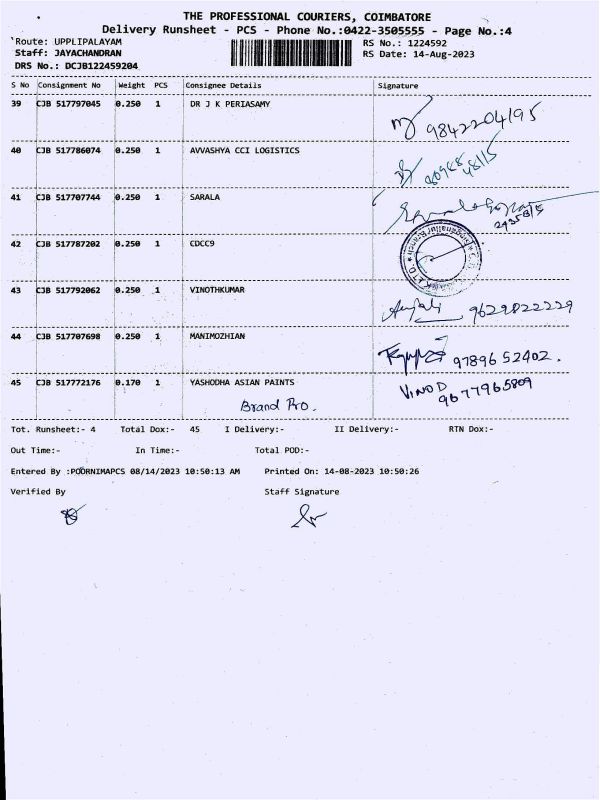 THE PROFESSIONAL COURIERS, COIMBATORE
Delivery Runsheet - PCS - Phone No.:0422-3505555 - Page No.:4
Route: UPPLIPALAYAM RS No.: 1224592
Staff: JAYACHANDRAN RS Date: 14-Aug-2023
DRS No.: DCJB122459204
S No Consignment No Weight PCS Consignee Details Signature
39 CJB 517797045 0.250 1 DR J K PERIASAMY
9842204195
40 CJB 517786074 0.250 1 AVVASHYA CCI LOGISTICS
41 CJB 517707744 0.250 1 SARALA
42 CJB 517787202 0.250 1 CDCC9
43 CJB 517792062 0.250 1 VINOTHKUMAR
Anjali 9629822229
44 CJB 517707698 0.250 1 MANIMOZHIAN
97896 52402.
45 CJB 517772176 0.170 1 YASHODHA ASIAN PAINTS
VINOD
9677965809
Brand Pro.
Tot. Runsheet:- 4 Total Dox:- 45 I Delivery:- II Delivery:- RTN Dox:-
Out Time:- In Time:- Total POD:-
Entered By :POORNIMAPCS 08/14/2023 10:50:13 AM Printed On: 14-08-2023 10:50:26
Verified By Staff Signature